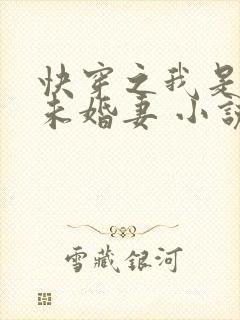 快穿之我是
未婚妻 小説
雪藏銀河